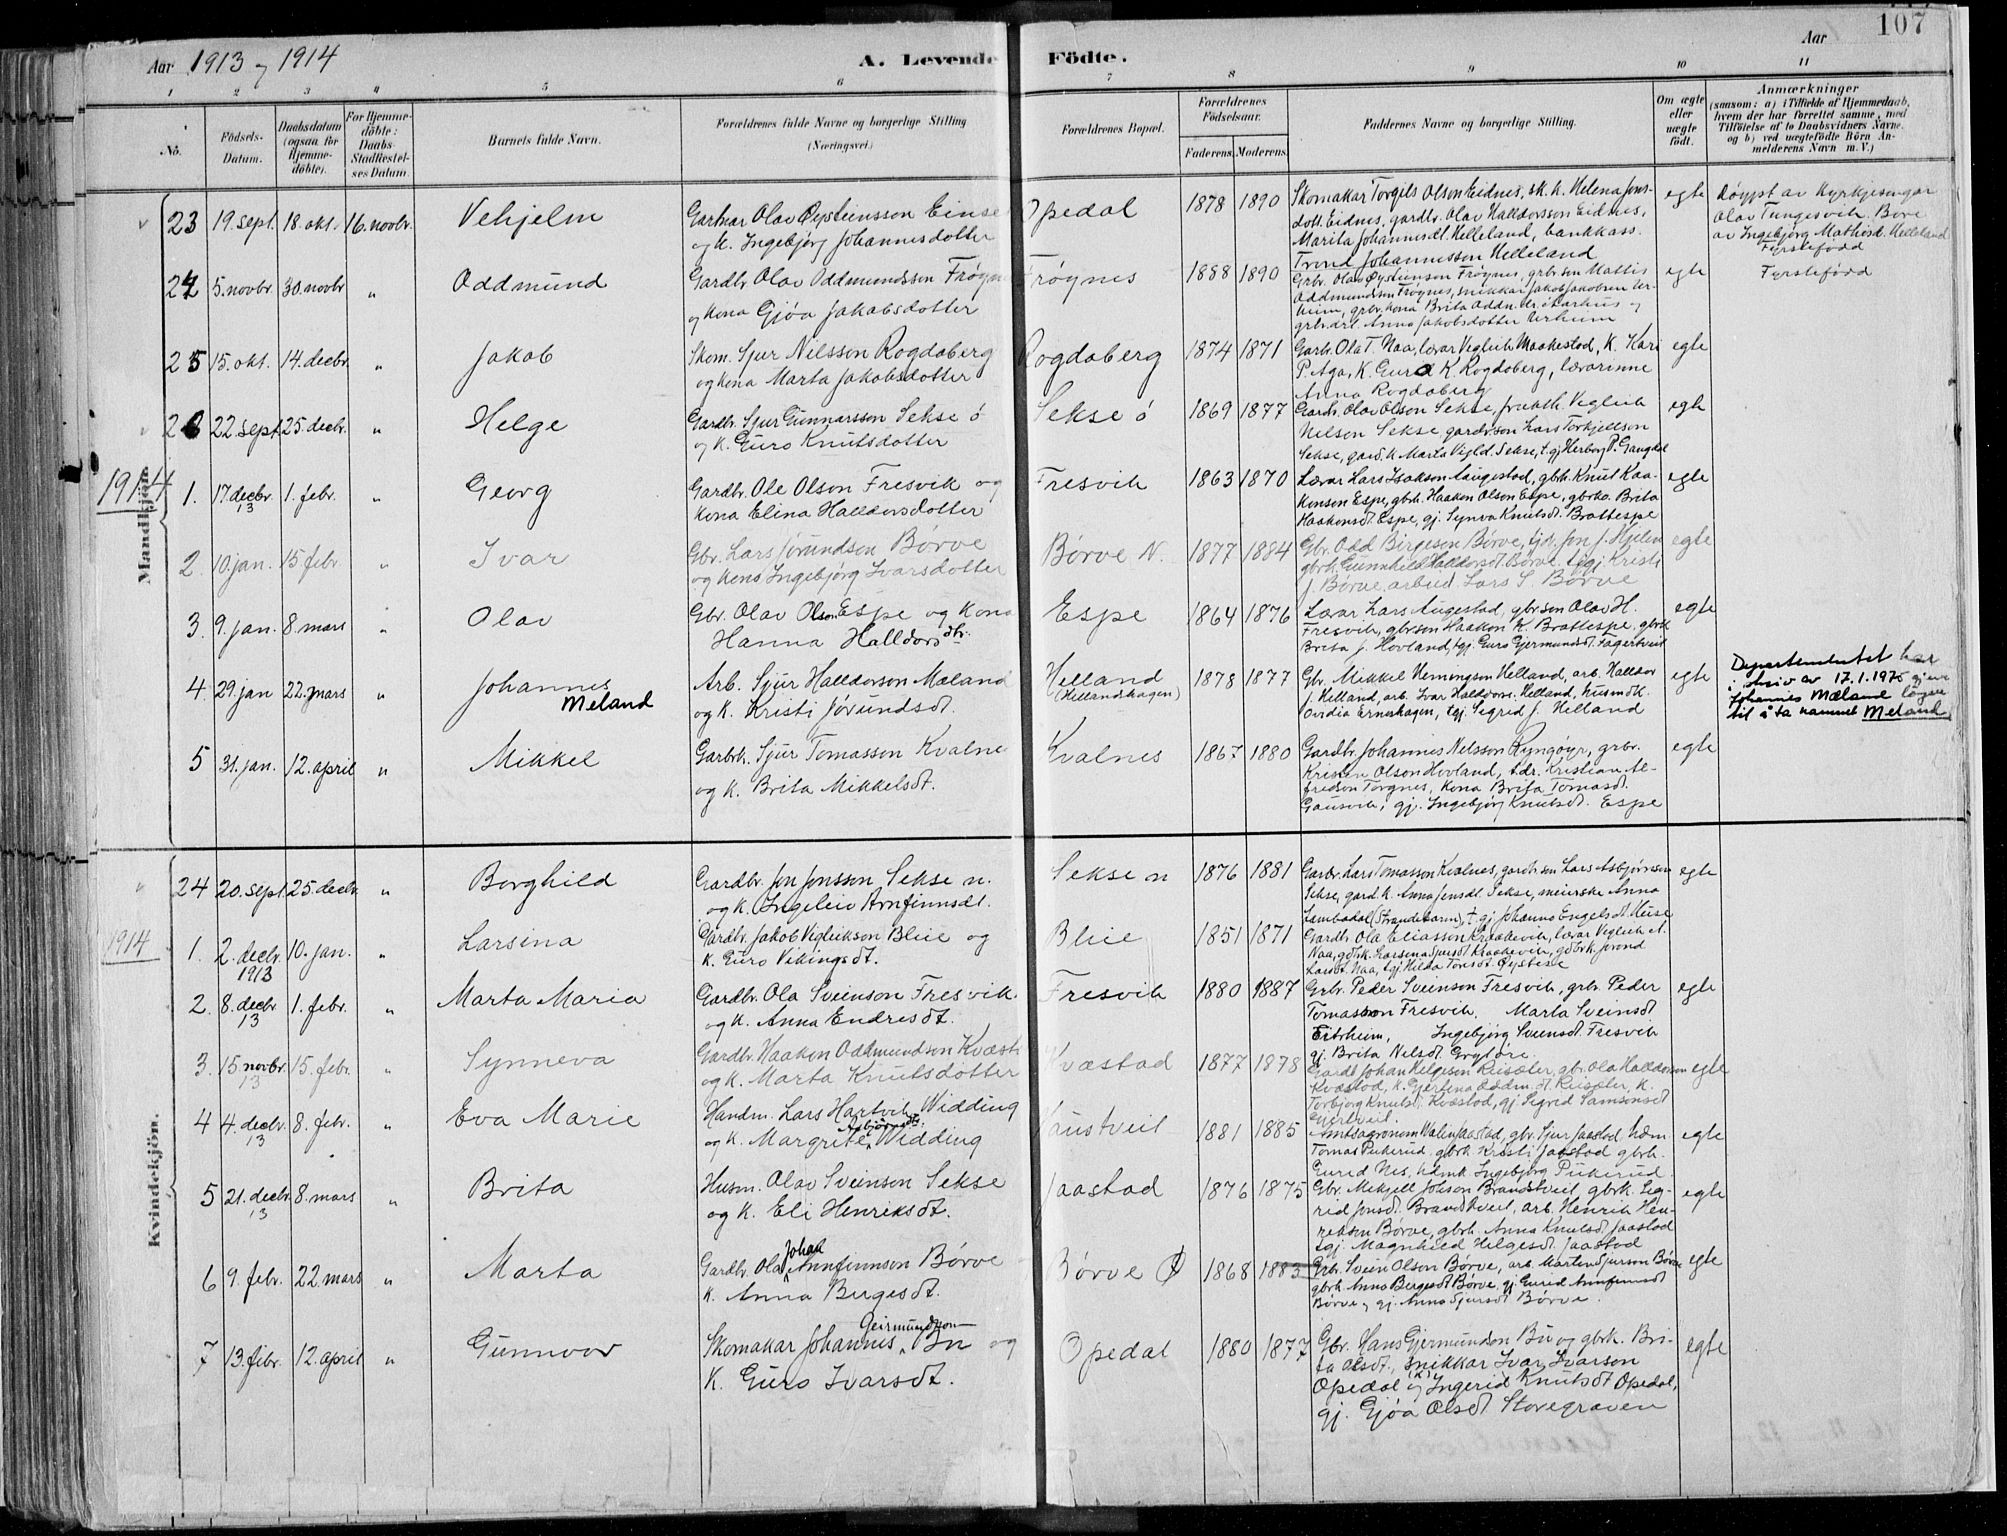 107
Aar 1913 og 1914 A. Levende Födte. Aar
1 2 3 4 5 6 7 8 9 10 11
No.
Födsels-Datum.
Daabsdatum (ogsaa for Hjemme-döbte).
For Hjemme-döbte: Daabs-Stadfæstel-ses Datum.
Barnets fulde Navn.
Forældrenes fulde Navne og borgerlige Stilling
(Næringsvei.)
Forældrenes Bopæl.
Forældrenes Födselsaar.
Faderens. Moderens.
Faddernes Navne og borgerlige Stilling.
Om ægte eller uægte födt.
Anmærkninger
(saasom: a) i Tilfælde af Hjemmedaab, hvem der har forrettet samme, med Tilföielse af to Daabsvidners Navne. og b) ved uægtefödte Börn An-melderens Navn m. V.)
Mandkjön.
23 19. sept. 18. okt. 16. novbr. Vehjelm
Gartnar Olav Øysteinsson Einse
og k. Ingebjørg Johannesdotter
Opedal 1878 1890
Skomakar Torgils Olson Eidnes, sk. k. Helena Jons-
dott. Eidnes, gardbr. Olav Halldorsson Eidnes,
Marita Johannesdt. Helleland, bankkass.
Trond Johannesson Helleland
egte
Døypt av kyrkjesongar
Olav Tungesvik. Bore
av Ingebjørg Mathisd. Helleland
Fyrstefødd
24 5. novbr 30. novbr " Oddmund
Gardbr. Olav Oddmundsson Frøgne
og kona Gjøa Jakobsdotter
Frøgnes 1888 1890
Grbr. Olav Øysteinson Frøgnes, grbr.son Mattis
Oddmundson Frøgnes, snikkar Jakob Jakobsen Ur-
heim, grbr. kona Brita Oddm.
Anna Jakobsdotter Urheim
egte
Fyrstefødd
25 15. okt. 14. decbr. " Jakob
Skom. Sjur Nilsson Rogdaberg
og kona Marta Jakobsdotter
Rogdaberg 1874 1871
Garbr. Ola T. Naa, lærar Vegleik Maakestad, K. Kari
P. Aga, K. Guro K. Rogdaberg, lærarinne
Anna Rogdaberg
egte
26 22. sept. 25. decbr. " Helge
Gardbr. Sjur Gunnarsson Sekse ø
og k. Guro Knutsdotter
Sekse ø 1869 1877
Gardb. Olav Olson Sekse, Vegleik
Nelson Sekse, gardbr.son Lars Torkjellson
Sekse, gard. k. Marta Vigld. Sekse, t. gj Herborg P.
egte
1914
1. 17. decbr 13 1. febr. " Georg
Gardbr. Ole Olson Fresvik og
kona Elina Halldorsdotter
Fresvik 1863 1870
Lærar Lars Isakson Augestad, gbrk. Knut Haa-
konson Espe, gbrk. Haakon Olson Espe, gbrko. Brita
Haakonsdt. Espe, gj. Synva Knutsdt. Brattespe
egte
2. 10. jan. 15. febr. " Ivar
Gbr. Lars Jørundson Børve
og kona Ingebjørg Ivarsdotter
Børve N. 1877 1884
Gbr. Odd Birgeson Børve, tjdr. Jon J. Hjelm
gbrk. Gunnhild Halldorsdt. Børve. tgj Kristi
J. Børve, arbeid. Lars S. Børve
egte
3. 9. jan. 8. mars " Olav
Gbr. Olav Olson Espe og kona
Hanna Halldorsdtr.
Espe 1864 1876
Lærar Lars Augestad, gbr son Olav H.
Fresvik, gbrson Haakon K. Brattespe, gbrk
Brita J. Hovland, tgj. Guro Gjermundsdt. Fagertveit
egte
4. 29. jan 22. mars " Johannes
Meland
Arb. Sjur Halldorson Mæland
og k. Kristi Jørundsdt.
Helland
(Hellandshagen)
1878 1877
Gbr. Mikkel Hemingson Helland, arb. Halldor
J. Helland, arb. Ivar Halldorss. Helland, husmdk.
Ovidia Erneshagen, tgj. Segrid J. Helland
egte
Departementet har
i skriv av 17.1.1975
Johannes Mæland
til å ta namnet Meland
5 31. jan. 12. april " Mikkel
Garbrk. Sjur Tomasson Kvalne
og k. Brita Mikkelsdt.
Kvalnes 1867 1880
Gardbr. Johannes Nelsson Ryngøyr, grbr.
Kristen Olson Hovland, tdr. Kristian Al-
fredson Torgnes, kona Brita Tomasdt.
Gausvik, gj. Ingebjørg Knutsdt. Espe
egte
Kvindekjön.
24 20. sept. 25. decbr. " Borghild
Gardbr. Jon Jonsson Sekse n.
og k. Ingeleiv Arnfinnsdt.
Sekse n 1876 1881
Garbr. Lars Tomasson Kvalnes, gardbr.son Lars Asbjørnson
Sekse, gard k. Anna Jonsdt. Sekse, meierske Anna
Sambadal (Strandebarm), t. gj Johanna Engelsdt. Huse
egte
1914
1. 2. decbr. 1913 10. jan. " Larsina
Gardbr. Jakob Vegleikson Bleie og
k. Guro Vikingsdt.
Bleie 1851 1871
Gardbr. Ola Eliasson Kraakevik, lærar Vegleik A.
Naa, gdbrk. Larsina Sjursdt Kraakevik, gdbrk. Jorond
Larsdt. Naa, tgj. Hilda Tonsdt. Øystese
2. 8. decbr 13 1. febr. " Marta Maria
Gardbr. Ola Sveinson Fresvik.
og k. Anna Endresdt.
Fresvik 1880 1887
Grbr. Peder Sveinson Fresvik, grbr. Peder
Tomasson Fresvik, Marta Sveinsdt
Eitrheim, Ingebjørg Sveinsdt. Fresvik
gj. Brita Nilsdt.
egte
3. 15. novbr. 13 15. febr. " Synneva
Gardbr. Haakon Oddmundson Kvæst
og k. Marta Knutsdotter
Kvæstad 1877 1878
Gardbr Johan Helgeson Reisæter, gbr. Ola Halldorson
Kvæstad, k. Gjertina Oddm. dt. Reisæter, k.
Torbjørg Knutsdt. Kvæstad, gj Segrid Samsonsdt
egte
4 4. decbr. 13 8. febr. " Eva Marie
Handm. Lars Hartvik Widding
og k. Margrite Asbjørnsdt. Widding
1881 1885
Amtsagronom Jaastad, gbr. Sjur Jaastad, hdm
Tomas Pukerud, gbrk. Kristi Jaastad gbrk.
Gurid Nes, hdmk Ingebjørg Pukerud.
egte
5 21. decbr. 13 8. mars " Brita
Husm. Olav Sveinson Sekse
og k. Eli Henriksdt.
Jaastad 1876 1875
Gbr. Mekjell Johson Brandstveit, gbrk. Seg-
rid Jonsdt. Brandstveit, arb. Henrik Hen-
rekson Børve, gbrk. Anna Knutsdt. Jaastad
tgj. Magnhild Helgesdt. Jaastad
egte
6 9. febr. 22. mars " Marta
Gardbr. Ola Johan Arnfinnson Børve
k. Anna Birgesdt.
Børve Ø 1868 1883
Gbr. Svein Olson Børve, arb. Marten Sjurson Børve
gbrk. Anna Bergesdt Børve, gj. Gurid Arnfinnsdt
Børve, gj. Anna Sjursdt Børve.
egte
7 13. febr. 12. april " Gunnvor
Skomakar Johannes Geirmundson Bu og
K. Guro Ivarsdt.
Opedal 1880 1877
Gbr. Hans Gjermundson Bu og gbrk. Bri-
ta Olsdt., snikkar Ivar Ivarson
Opedal og (k) Ingerid Knutsdt Opedal,
gj. Gjøa Olsdt Storegraven
egte